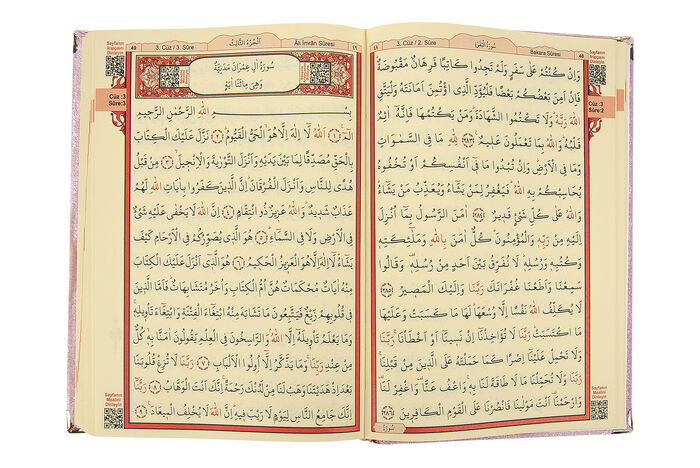 48
سُورَةُ الْبَقَرَةِ
3. Cüz / 2. Sûre
Bakara Sûresi
Sayfanın
Arapçasını
Dinleyin
Cüz :3
Sûre:2
وَاِنْ كُنْتُمْ عَلٰى سَفَرٍ وَلَمْ تَجِدُوا كَاتِبًا فَرِهَانٌ مَقْبُوضَةٌ
فَاِنْ اَمِنَ بَعْضُكُمْ بَعْضًا فَلْيُؤَدِّ الَّذِي اؤْتُمِنَ اَمَانَتَهُ وَلْيَتَّقِ
اللّٰهَ رَبَّهُ وَلَا تَكْتُمُوا الشَّهَادَةَ وَمَنْ يَكْتُمْهَا فَاِنَّهُ اٰثِمٌ
قَلْبُهُ وَاللّٰهُ بِمَا تَعْمَلُونَ عَلِيمٌ ﴿٢٨٣﴾ لِلّٰهِ مَا فِي السَّمٰوَاتِ
وَمَا فِي الْاَرْضِ وَاِنْ تُبْدُوا مَا فِي اَنْفُسِكُمْ اَوْ تُخْفُوهُ
يُحَاسِبْكُمْ بِهِ اللّٰهُ فَيَغْفِرُ لِمَنْ يَشَاءُ وَيُعَذِّبُ مَنْ يَشَاءُ
وَاللّٰهُ عَلٰى كُلِّ شَيْءٍ قَدِيرٌ ﴿٢٨٤﴾ اٰمَنَ الرَّسُولُ بِمَا اُنْزِلَ
اِلَيْهِ مِنْ رَبِّهِ وَالْمُؤْمِنُونَ كُلٌّ اٰمَنَ بِاللّٰهِ وَمَلٰئِكَتِهِ
وَكُتُبِهِ وَرُسُلِهِ لَا نُفَرِّقُ بَيْنَ اَحَدٍ مِنْ رُسُلِهِ وَقَالُوا
سَمِعْنَا وَاَطَعْنَا غُفْرَانَكَ رَبَّنَا وَاِلَيْكَ الْمَصِيرُ ﴿٢٨٥﴾
لَا يُكَلِّفُ اللّٰهُ نَفْسًا اِلَّا وُسْعَهَا لَهَا مَا كَسَبَتْ وَعَلَيْهَا
مَا اكْتَسَبَتْ رَبَّنَا لَا تُؤَاخِذْنَا اِنْ نَسِينَا اَوْ اَخْطَأْنَا رَبَّنَا
وَلَا تَحْمِلْ عَلَيْنَا اِصْرًا كَمَا حَمَلْتَهُ عَلَى الَّذِينَ مِنْ قَبْلِنَا
رَبَّنَا وَلَا تُحَمِّلْنَا مَا لَا طَاقَةَ لَنَا بِهِ وَاعْفُ عَنَّا وَاغْفِرْ لَنَا
وَارْحَمْنَا اَنْتَ مَوْلٰينَا فَانْصُرْنَا عَلَى الْقَوْمِ الْكَافِرِينَ ﴿٢٨٦﴾
سُورَةُ
Sayfanın
Mealini
Dinleyin
49
3. Cüz / 3. Sûre
اَلْجُزْءُ الثَّالِثُ
Âli İmrân Sûresi
Sayfanın
Arapçasını
Dinleyin
Cüz :3
Sûre:3
سُورَةُ اٰلِ عِمْرٰانَ مَدَنِيَّةٌ
وَهِيَ مِائَتَا اٰيَةٍ
بِسْمِ اللّٰهِ الرَّحْمٰنِ الرَّحِيمِ
الٓمٓ ﴿١﴾ اَللّٰهُ لَا اِلٰهَ اِلَّا هُوَ الْحَيُّ الْقَيُّومُ ﴿٢﴾ نَزَّلَ عَلَيْكَ الْكِتَابَ
بِالْحَقِّ مُصَدِّقًا لِمَا بَيْنَ يَدَيْهِ وَاَنْزَلَ التَّوْرٰيةَ وَالْاِنْجِيلَ ﴿٣﴾ مِنْ قَبْلُ
هُدًى لِلنَّاسِ وَاَنْزَلَ الْفُرْقَانَ اِنَّ الَّذِينَ كَفَرُوا بِاٰيَاتِ اللّٰهِ لَهُمْ
عَذَابٌ شَدِيدٌ وَاللّٰهُ عَزِيزٌ ذُو انْتِقَامٍ ﴿٤﴾ اِنَّ اللّٰهَ لَا يَخْفٰى عَلَيْهِ شَيْءٌ
فِي الْاَرْضِ وَلَا فِي السَّمَاءِ ﴿٥﴾ هُوَ الَّذِي يُصَوِّرُكُمْ فِي الْاَرْحَامِ كَيْفَ
يَشَاءُ لَا اِلٰهَ اِلَّا هُوَ الْعَزِيزُ الْحَكِيمُ ﴿٦﴾ هُوَ الَّذِي اَنْزَلَ عَلَيْكَ الْكِتَابَ
مِنْهُ اٰيَاتٌ مُحْكَمَاتٌ هُنَّ اُمُّ الْكِتَابِ وَاُخَرُ مُتَشَابِهَاتٌ فَاَمَّا الَّذِينَ
فِي قُلُوبِهِمْ زَيْغٌ فَيَتَّبِعُونَ مَا تَشَابَهَ مِنْهُ ابْتِغَاءَ الْفِتْنَةِ وَابْتِغَاءَ تَأْوِيلِهِ
وَمَا يَعْلَمُ تَأْوِيلَهُ اِلَّا اللّٰهُ وَالرَّاسِخُونَ فِي الْعِلْمِ يَقُولُونَ اٰمَنَّا بِهِ كُلٌّ
مِنْ عِنْدِ رَبِّنَا وَمَا يَذَّكَّرُ اِلَّا اُولُوا الْاَلْبَابِ ﴿٧﴾ رَبَّنَا لَا تُزِغْ قُلُوبَنَا
بَعْدَ اِذْ هَدَيْتَنَا وَهَبْ لَنَا مِنْ لَدُنْكَ رَحْمَةً اِنَّكَ اَنْتَ الْوَهَّابُ ﴿٨﴾ رَبَّنَا
اِنَّكَ جَامِعُ النَّاسِ لِيَوْمٍ لَا رَيْبَ فِيهِ اِنَّ اللّٰهَ لَا يُخْلِفُ الْمِيعَادَ ﴿٩﴾
Sayfanın
Mealini
Dinleyin